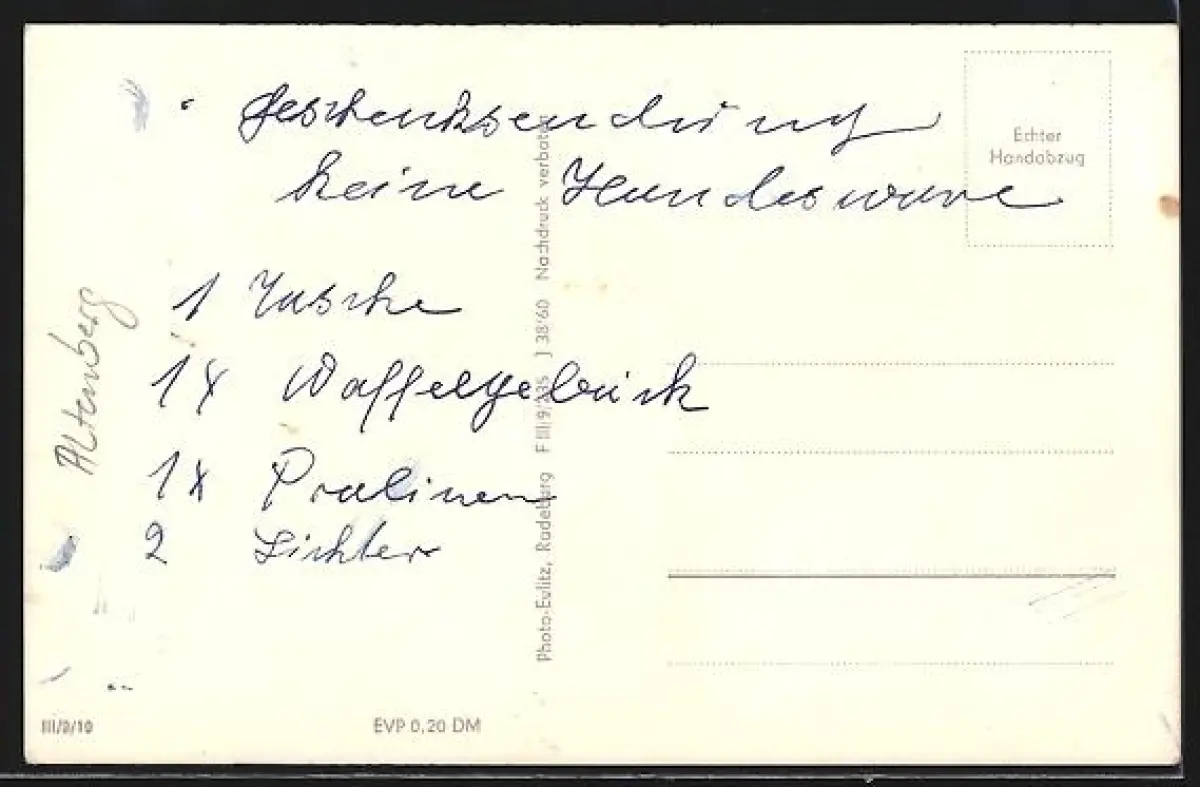 Geschenksendung
keine Handelsware
1 Tasche
1x Waffelgebäck
1x Pralinen
2 Lichter
Altenberg
Echter
Handabzug
Photo-Eulitz, Radeburg F III/9/235 J 38/60 Nachdruck verboten
III/9/10
EVP 0,20 DM